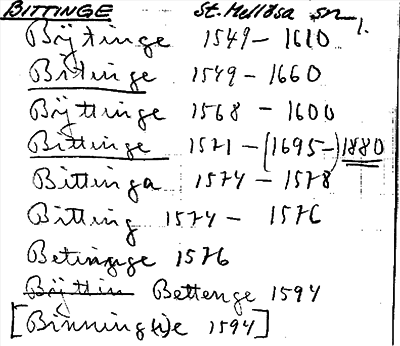 BITTINGE St. Mellösa sn
Bÿtinge 1549 – 1610
Bitinge 1549 – 1660
Bÿttinge 1568 – 1600
Bittinge 1571 – (1695 –) 1880
Bittinga 1574 – 1578
Bitting 1574 – 1576
Betingge 1576
Bÿttin Bettenge 1594
[Binning(i)e 1594]